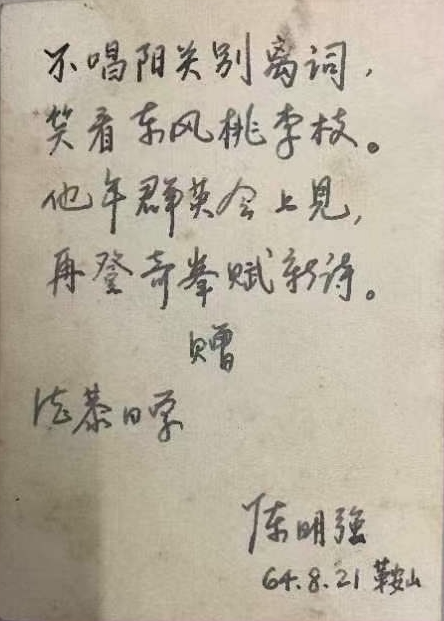 不唱阳关别离词，
笑看东风桃李枝。
他年群英会上见，
再登奇拳赋新诗。
赠
慕同学
陈明强
64.8.21 鞍山